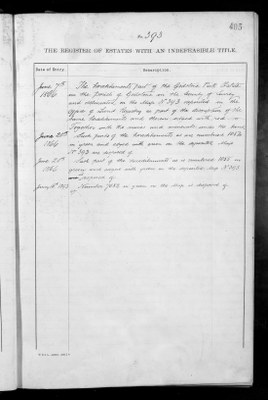 405
No. 393
THE REGISTER OF ESTATES WITH AN INDEFEASIBLE TITLE.
Date of Entry. Description.
June 7th The hereditaments part of the Park Estate
1864 in the Parish of in the County of Surrey
and delineated on the Map No 393 deposited in the
Office of Land Registry as part of the description of the
same hereditaments and thereon edged with red
Together with the mines and minerals under the same
June 20th Such parts of the hereditaments as are numbered
1864 in green and edged with green on the deposited Map
No 393 are disposed of
June 21st Such part of the hereditaments as is numbered 1885 in
1865 green and edged with green on the deposited Map No 393
are disposed of
Number 7082 in green on the Map is disposed
of